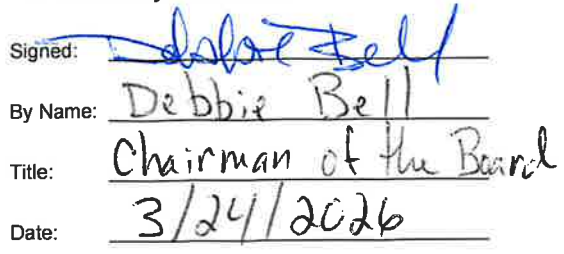 Signed: Debbie Bell
By Name: Debbie Bell
Title: Chairman of the Board
Date: 3/24/2026